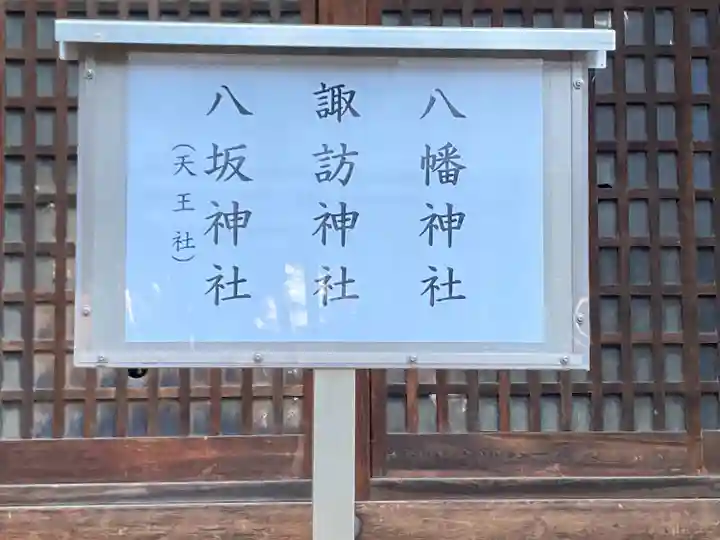 八幡神社
諏訪神社
八坂神社
（天王社）